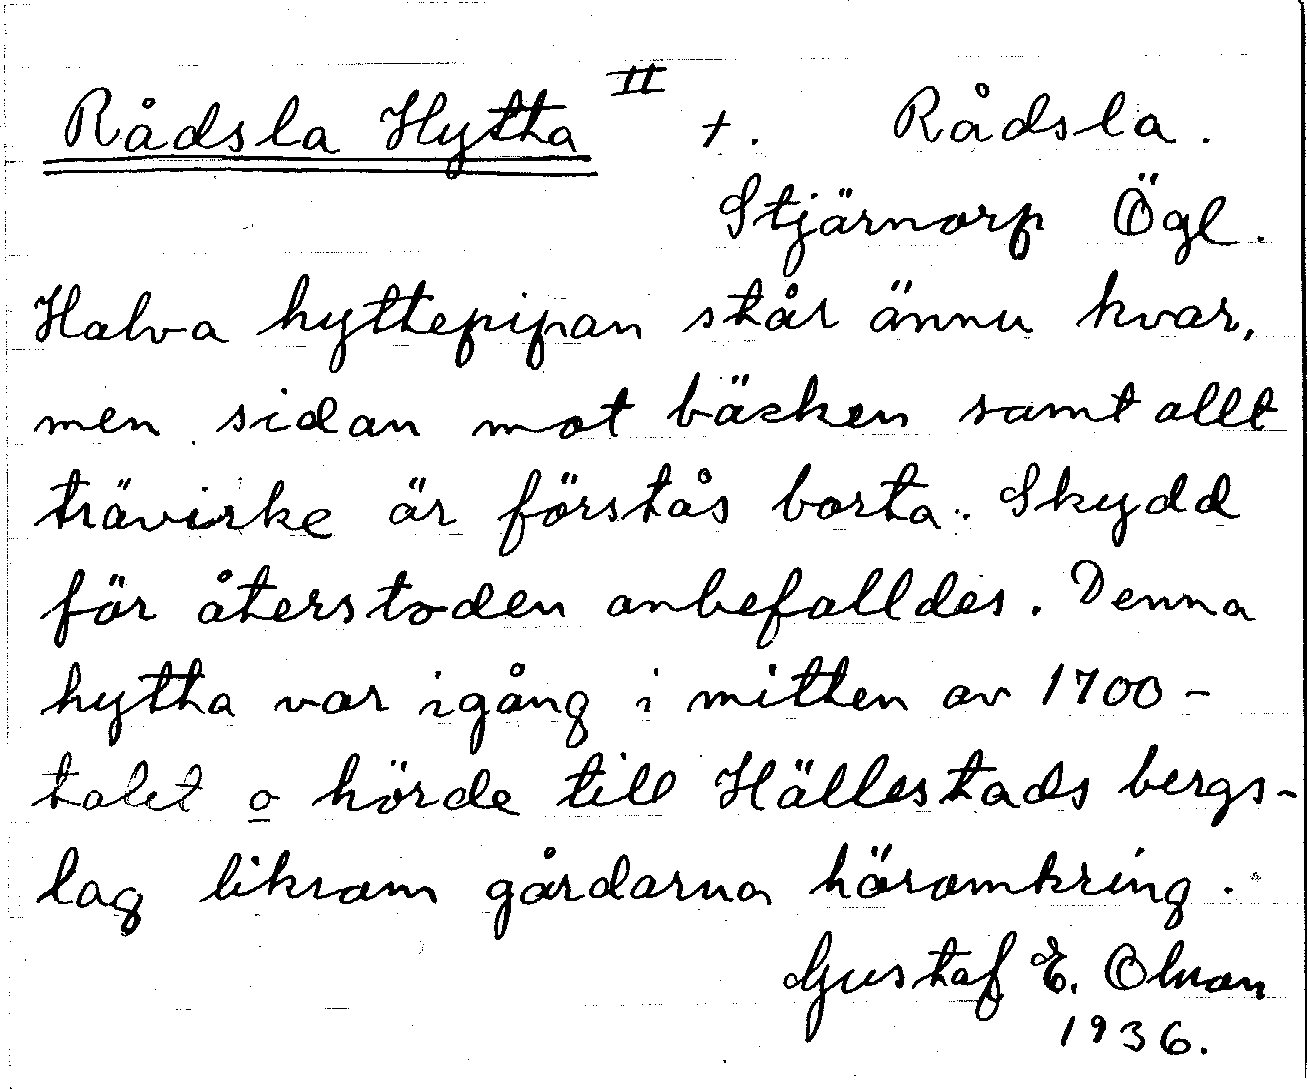 Rådsla Hytta II +. Rådsla.
Stjärnorp Ögl.
Halva hyttepipan står ännu kvar,
men sidan mot bäcken samt allt
trävirke är förstås borta. Skydd
för återstoden anbefalldes. Denna
hytta var igång i mitten av 1700-
talet o hörde till Hällestads bergs-
lag liksom gårdarna häromkring.
Gustaf E. Olsson
1936.